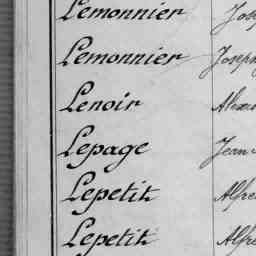 Lemonnier Jos
Lemonnier Joseph
Lenoir Alexa
Lepage Jean
Lepetit Alfre
Lepetit Alfre